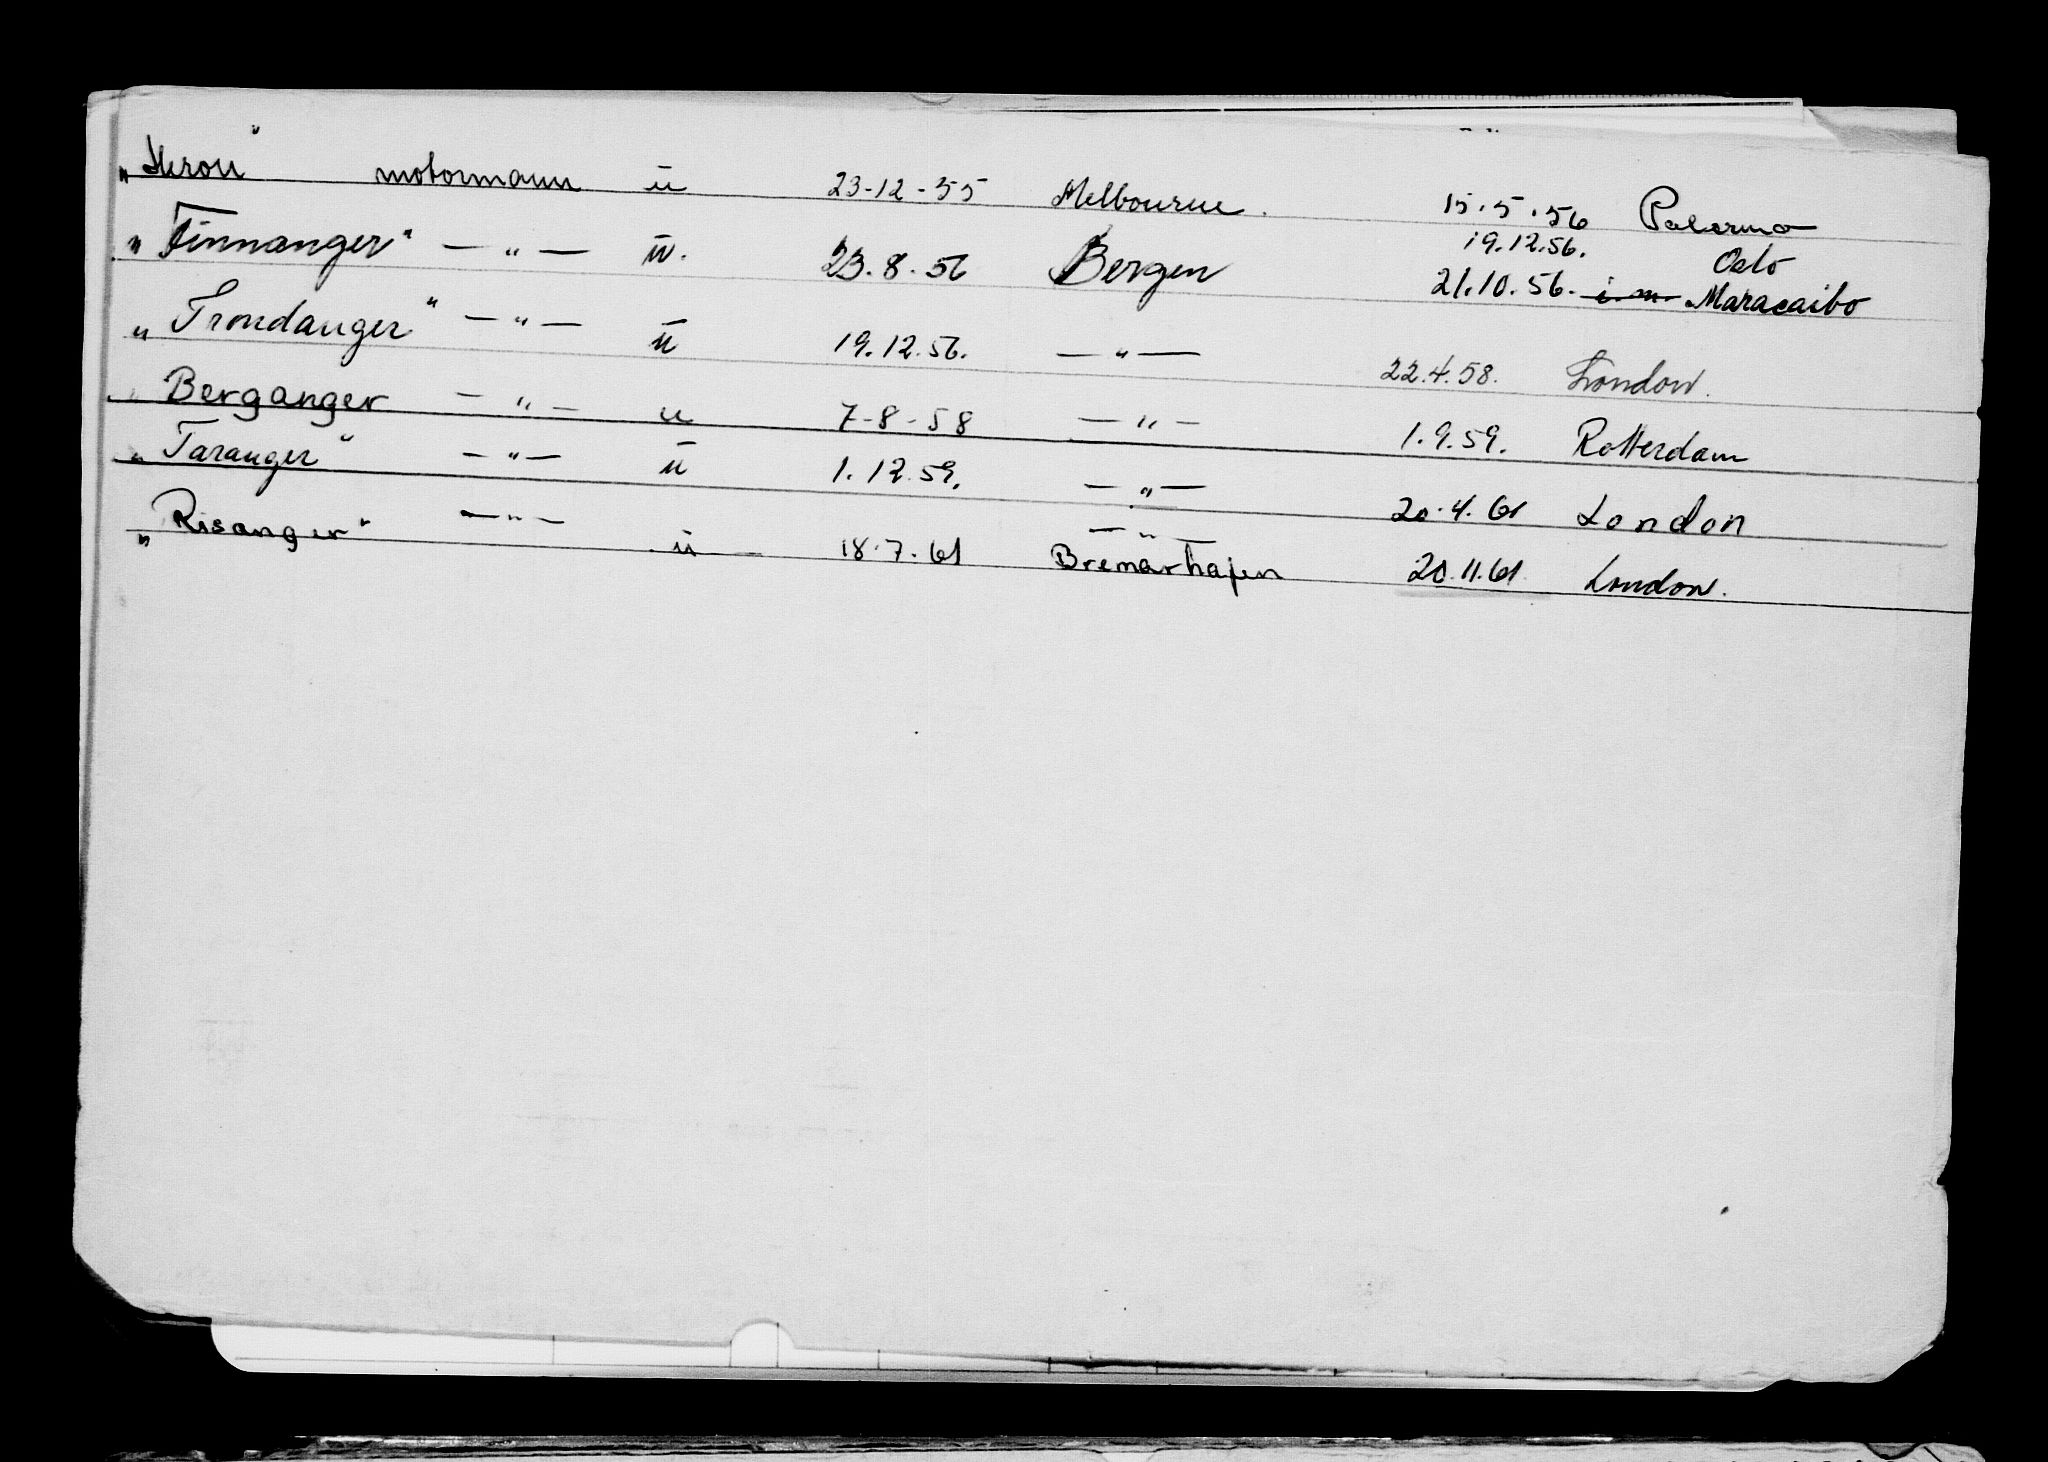 motormann u 23-12-55 Melbourne. 15.5.56 Palermo
„Finnanger" — „ — u. 23.8.56 Bergen 19.12.56. Oslo
21.10.56. i.m. Maracaibo
„Trondanger" — „ — u 19.12.56. — „ — 22.4.58. London.
Berganger — „ — u 7-8-58 — „ — 1.9.59. Rotterdam
„Taranger" — „ — u 1.12.59. — „ — 20.4.61 London
„Risanger" — „ — u 18.7.61 — „ — Bremärhafen 20.11.61. London.